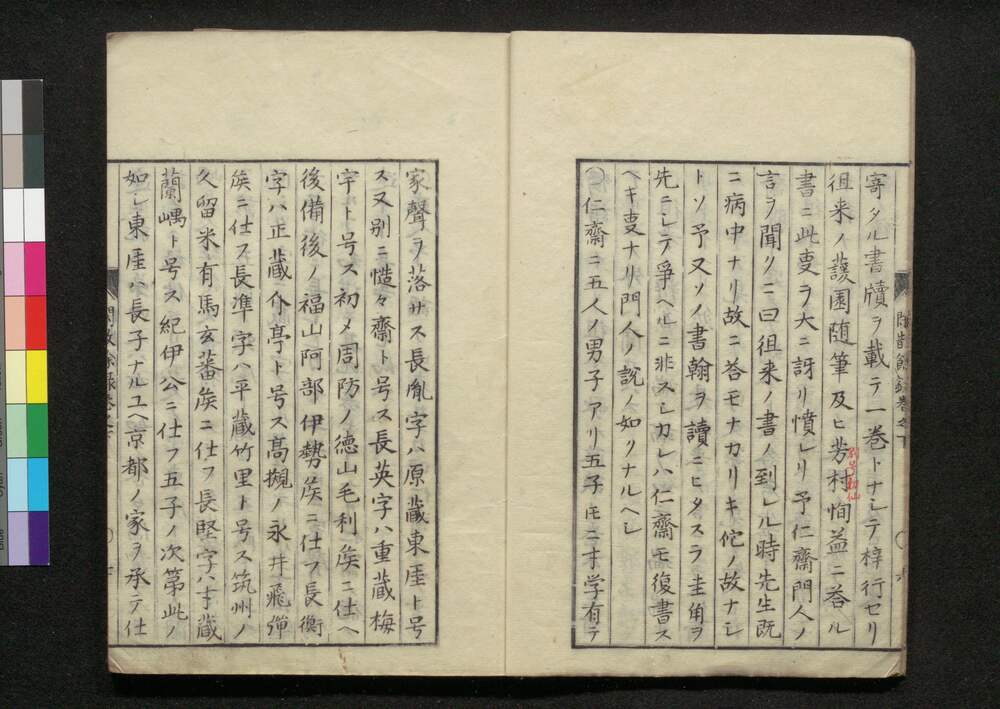 寄タル書牘ヲ載テ一巻トナシテ梓行セリ
徂来ノ蘐園随筆及ヒ芳村恂益ニ荅ル
書ニ此叓ヲ大ニ訝リ憤レリ予仁齋門人ノ
言ヲ聞リニ曰徂来ノ書ノ到レル時先生既
ニ病中ナリ故ニ荅モナカリキ佗ノ故ナシ
トソ予又ソノ書翰ヲ讀ニヒタスラ圭角ヲ
先ニシテ爭ヘルニ非スシカレハ仁齋モ復書ス
ヘキ叓ナリ門人ノ説ノ如クナルヘシ
○仁齋ニ五人ノ男子アリ五子𪜈ニ才学有テ
家聲ヲ落サス長胤字ハ原藏東厓ト号
ス又別ニ慥々齋ト号ス長英字ハ重藏梅
宇ト号ス初メ周防ノ徳山毛利矦ニ仕ヘ
後備後ノ福山阿部伊勢矦ニ仕フ長衡
字ハ正藏介亭ト号ス高槻ノ永井飛彈
矦ニ仕フ長準字ハ平藏竹里ト号ス筑州ノ
久留米有馬玄蕃矦ニ仕フ長堅字ハ才藏
蘭嵎ト号ス紀伊公ニ仕フ五子ノ次第此ノ
如シ東厓ハ長子ナルユヘ京都ノ家ヲ承テ仕